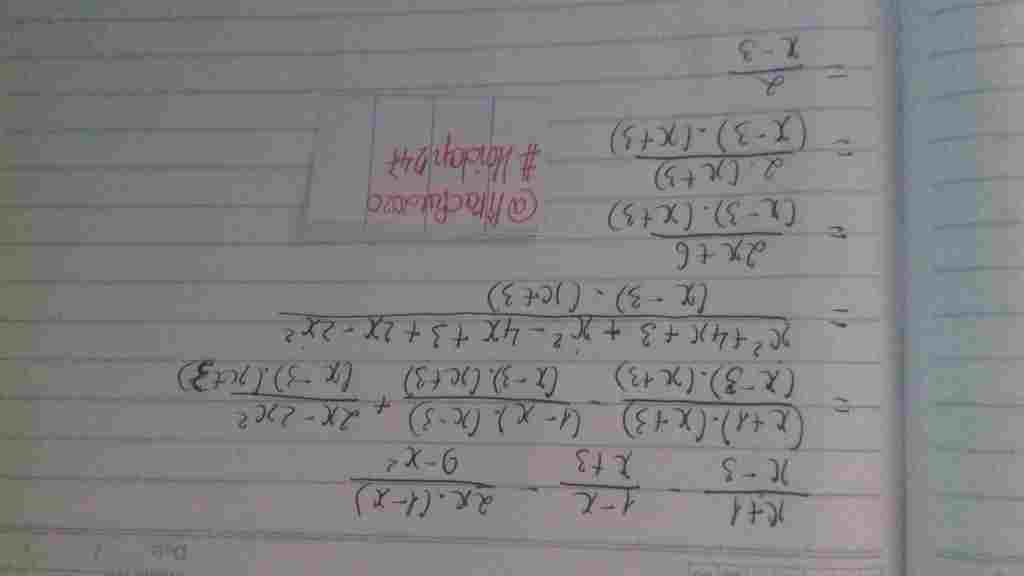 Date / /
x+1/x-3 - 1-x/x+3 - 2x.(1-x)/9-x²
= (x+1).(x+3)/(x-3).(x+3) - (1-x).(x-3)/(x-3).(x+3) + 2x-2x²/(x-3).(x+3)
= x²+4x+3+x²-4x+3+2x-2x²/(x-3).(x+3)
= 2x+6/(x-3).(x+3)
= 2.(x+3)/(x-3).(x+3)
#Hoidap247
= 2/x-3